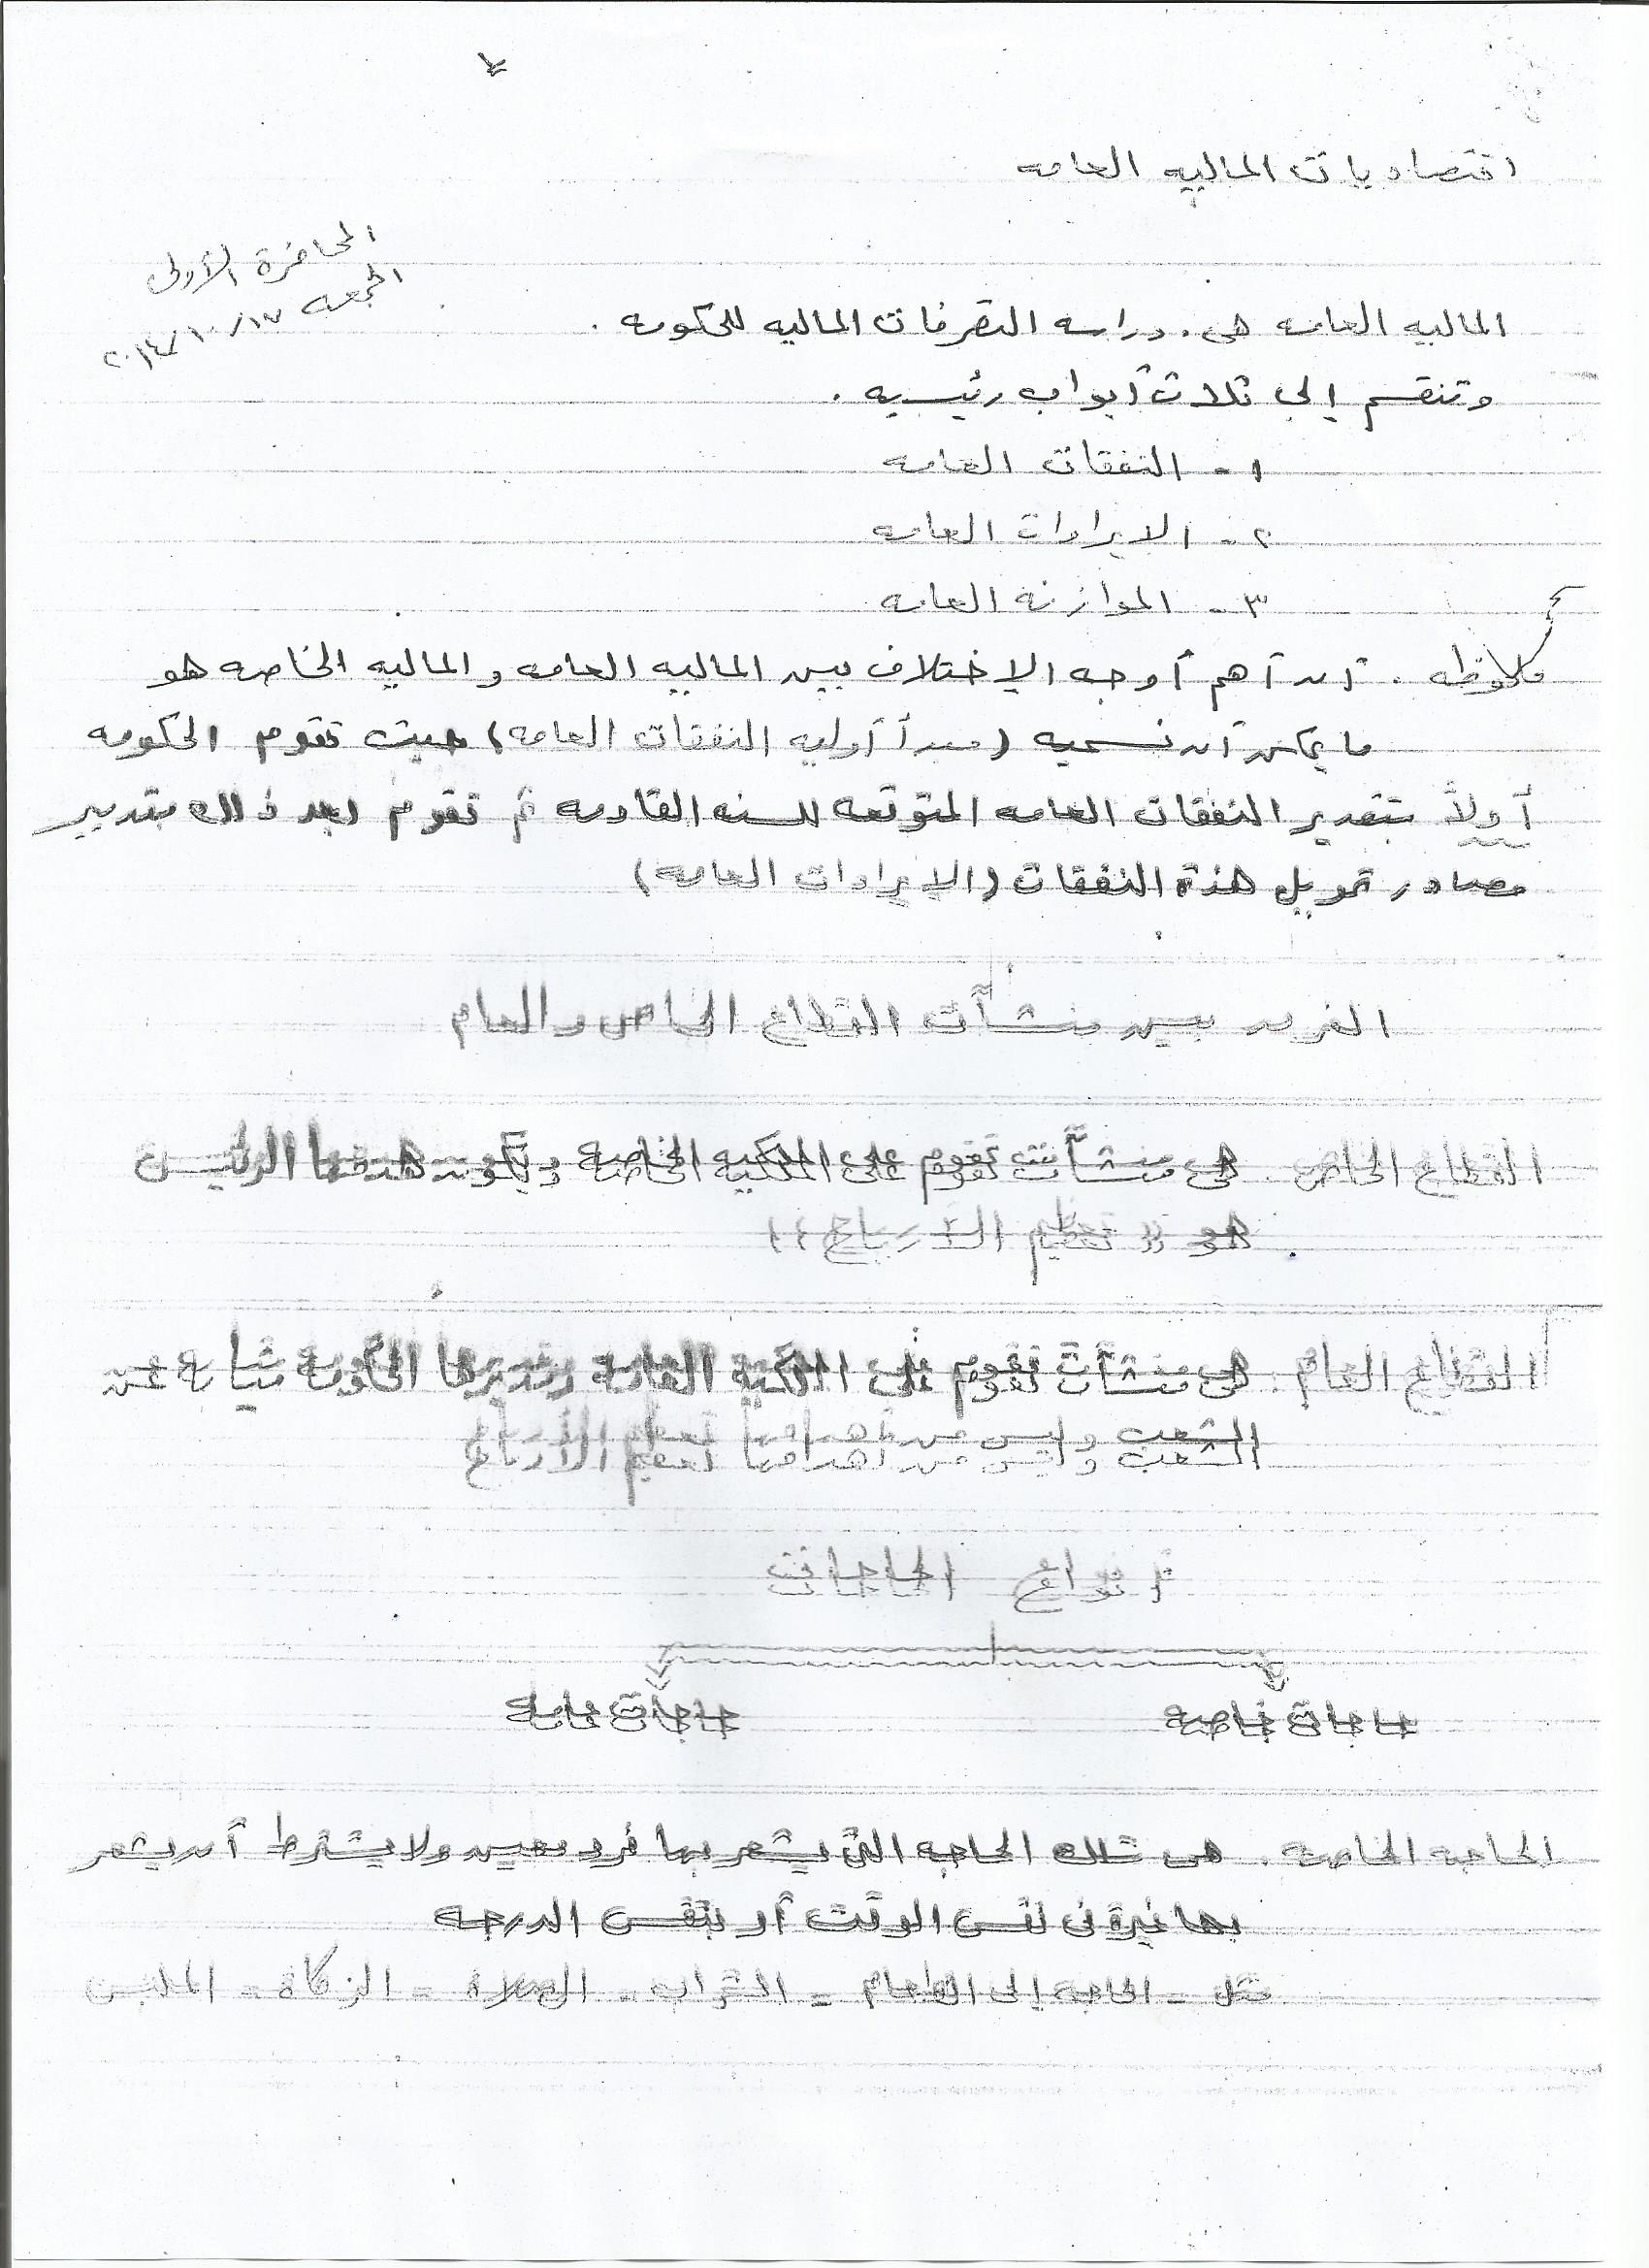 اقتصاديات الماليه العامه
المحاضرة الأولى
الجمعه ١٧/١٠/٢٠١٤
الماليه العامه هى . دراسه التصرفات الماليه للحكومه .
وتنقسم إلى ثلاث أبواب رئيسيه .
١ - النفقات العامه
٢ - الايرادات العامه
٣ - الموازنه العامه
ملحوظه . أن أهم أوجه الإختلاف بين الماليه العامه والماليه الخاصه هو
ما يمكن أن نسميه (مبدأ أوليه النفقات العامه) حيث تقوم الحكومه
أولاً بتقدير النفقات العامه المتوقعه للسنه القادمه ثم تقوم بعد ذلك بتدبير
مصادر تمويل هذة النفقات (الإيرادات العامه)
الفرق بين منشأت القطاع الخاص والعام
القطاع الخاص . هى منشأت تقوم على الملكيه الخاصه ويكون هدفها الرئيسى
هو (( تعظيم الأرباح ))
القطاع العام . هى منشأت تقوم على الملكية العامه وتديرها الحكومه نيابه عن
الشعب وليس من أهدافها تعظيم الأرباح
أنواع الحاجات
حاجات خاصه حاجات عامه
الحاجه الخاصه . هى تلك الحاجه التى يشعر بها فرد معين ولا يشترط أن يشعر
بها غيرة فى نفس الوقت أو بنفس الدرجه
مثل - الحاجه إلى الطعام - الشراب - الصلاة - الزكاة - الملبس